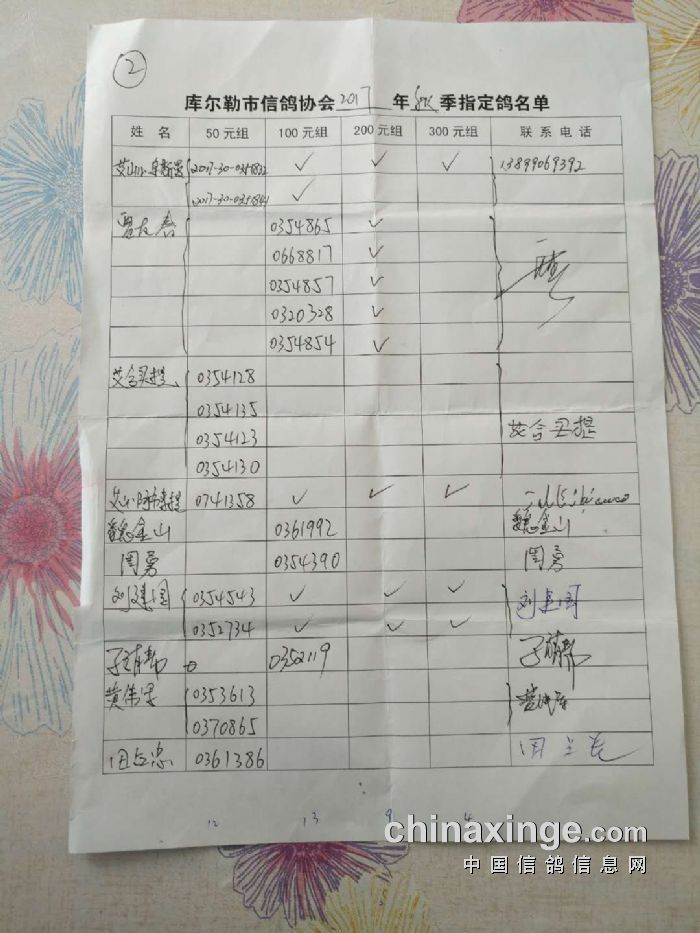 ②
库尔勒市信鸽协会2017年秋季指定鸽名单
姓 名 50元组 100元组 200元组 300元组 联系电话
✓ ✓ ✓ 13899069392
✓
0354865 ✓
0668817 ✓
0354857 ✓
0320328 ✓
0354854 ✓
艾合买提 0354128
0354135
0354123 艾合买提
0354130
0741358 ✓ ✓ ✓
魏金山 0361992 魏金山
周勇 0354390 周勇
刘建国 0354543 ✓ ✓ ✓ 刘建国
0352734 ✓ ✓ ✓
0352119
黄伟军 0353613
0370865
0361386
12 13 9 4
chinaxinge.com
中国信鸽信息网